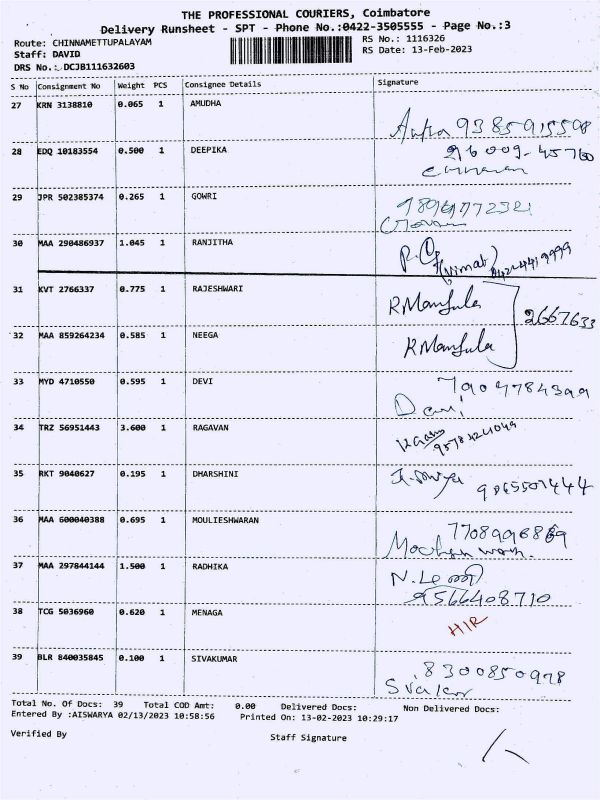 THE PROFESSIONAL COURIERS, Coimbatore
Delivery Runsheet - SPT - Phone No.:0422-3505555 - Page No.:3
Route: CHINNAMETTUPALAYAM
RS No.: 1116326
Staff: DAVID
RS Date: 13-Feb-2023
DRS No.: DCJB111632603
S No Consignment No Weight PCS Consignee Details Signature
27 KRN 3138810 0.065 1 AMUDHA
9385915598
28 EDQ 10183554 0.500 1 DEEPIKA
29 JPR 502385374 0.265 1 GOWRI
30 MAA 290486937 1.045 1 RANJITHA
(Vimat)
31 KVT 2766337 0.775 1 RAJESHWARI
R Manjula
2667633
32 MAA 859264234 0.585 1 NEEGA
R Manjula
33 MYD 4710550 0.595 1 DEVI
7904784399
Devi
34 TRZ 56951443 3.600 1 RAGAVAN
35 RKT 9040627 0.195 1 DHARSHINI
9865507444
36 MAA 600040388 0.695 1 MOULIESHWARAN
37 MAA 297844144 1.500 1 RADHIKA
9566408710
38 TCG 5036960 0.620 1 MENAGA
HIR
39 BLR 840035845 0.100 1 SIVAKUMAR
8300850978
Total No. Of Docs: 39 Total COD Amt: 0.00 Delivered Docs: Non Delivered Docs:
Entered By :AISWARYA 02/13/2023 10:58:56 Printed On: 13-02-2023 10:29:17
Verified By
Staff Signature